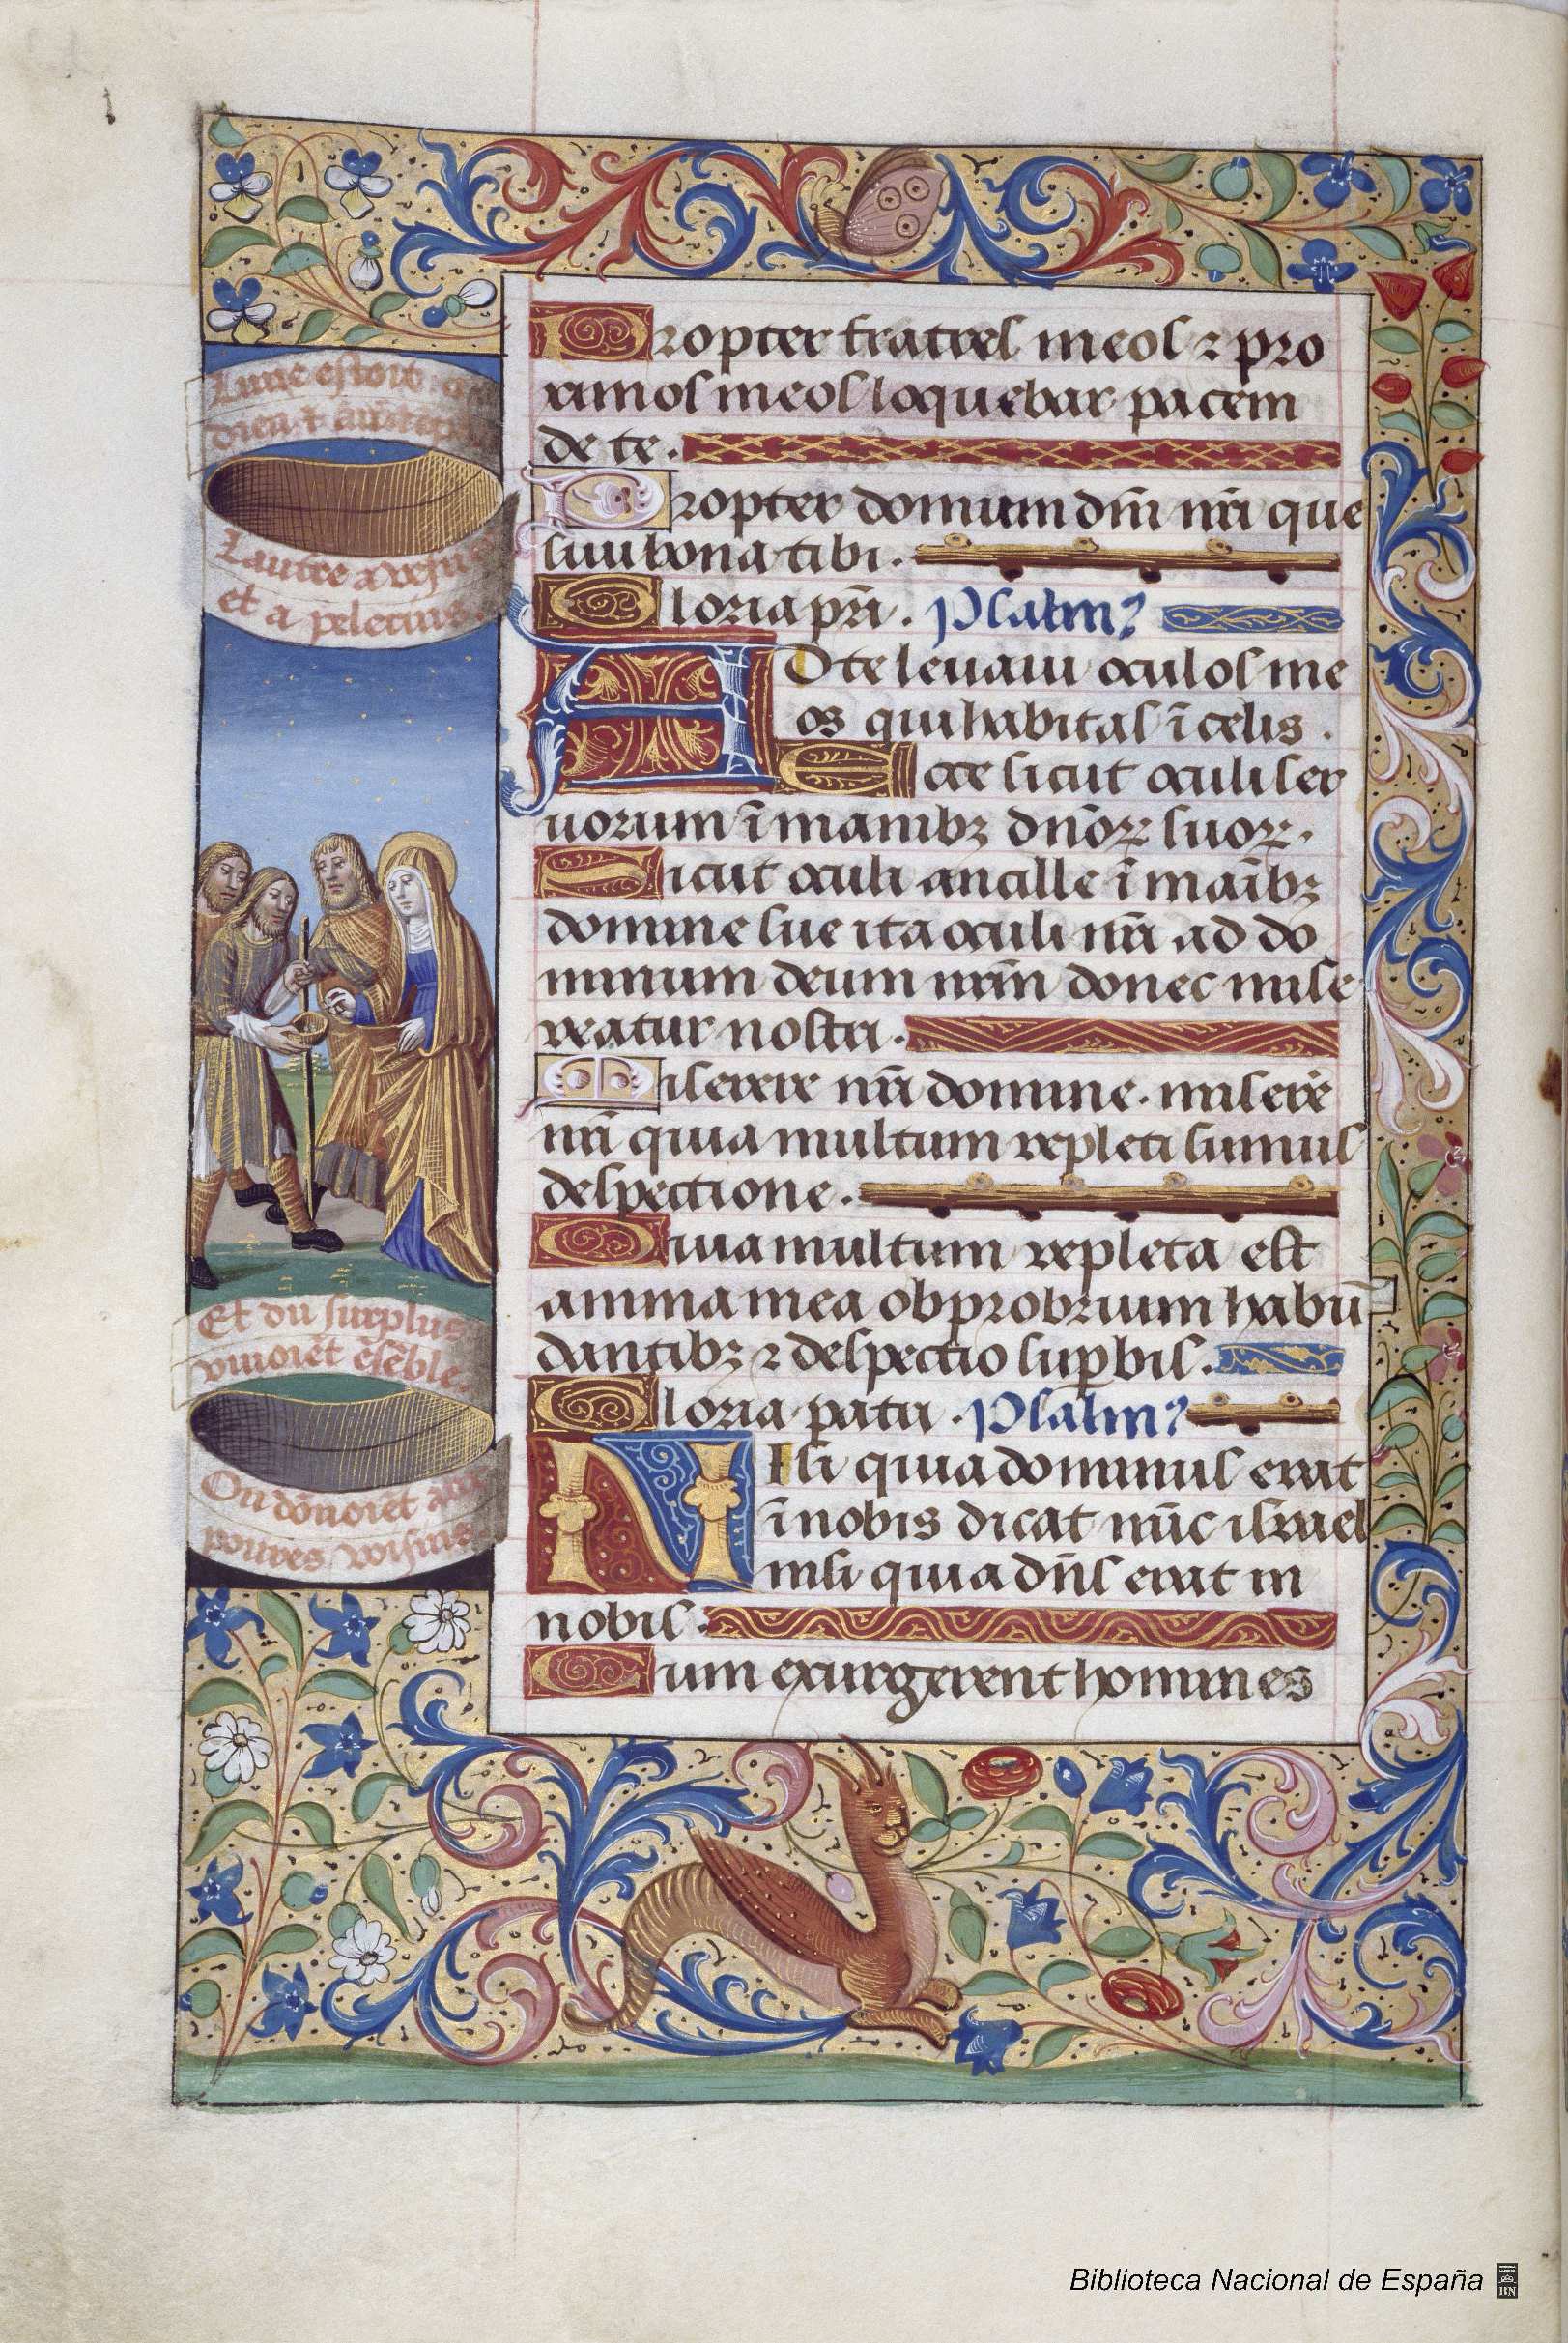 Lune estoit a
dieu et au temple
Lautre a vesues
et a pelerins.
Et du surplus
vivoiẽt ẽsẽble.
Ou dõnoiẽt aux
poures voisins.
Propter fratres meos ⁊ pro
ximos meos loquebar pacem
de te.
Propter domum dñi nr̃i que
siui bona tibi.
Gloria pr̃i. Psalm⁹
AD te leuaui oculos me
os qui habitas ĩ celis.
Ecce sicut oculi ser
uorum ĩ manibꝫ dñoꝝ suoꝝ.
Sicut oculi ancille ĩ maĩbꝫ
domine sue ita oculi nr̃i ad do
minum deum nr̃m donec mise
reatur nostri.
Miserere nr̃i domine. misere
nr̃i quia multum repleti sumus
despectione.
Quia multum repleta est
anima mea obprobrium habũ
dantibꝫ ⁊ despectio suꝑbis.
Gloria patri. Psalm⁹
NIsi quia dominus erat
ĩ nobis dicat nũc israel
nisi quia dñs erat in
nobis.
Cum exurgerent homines
Biblioteca Nacional de España